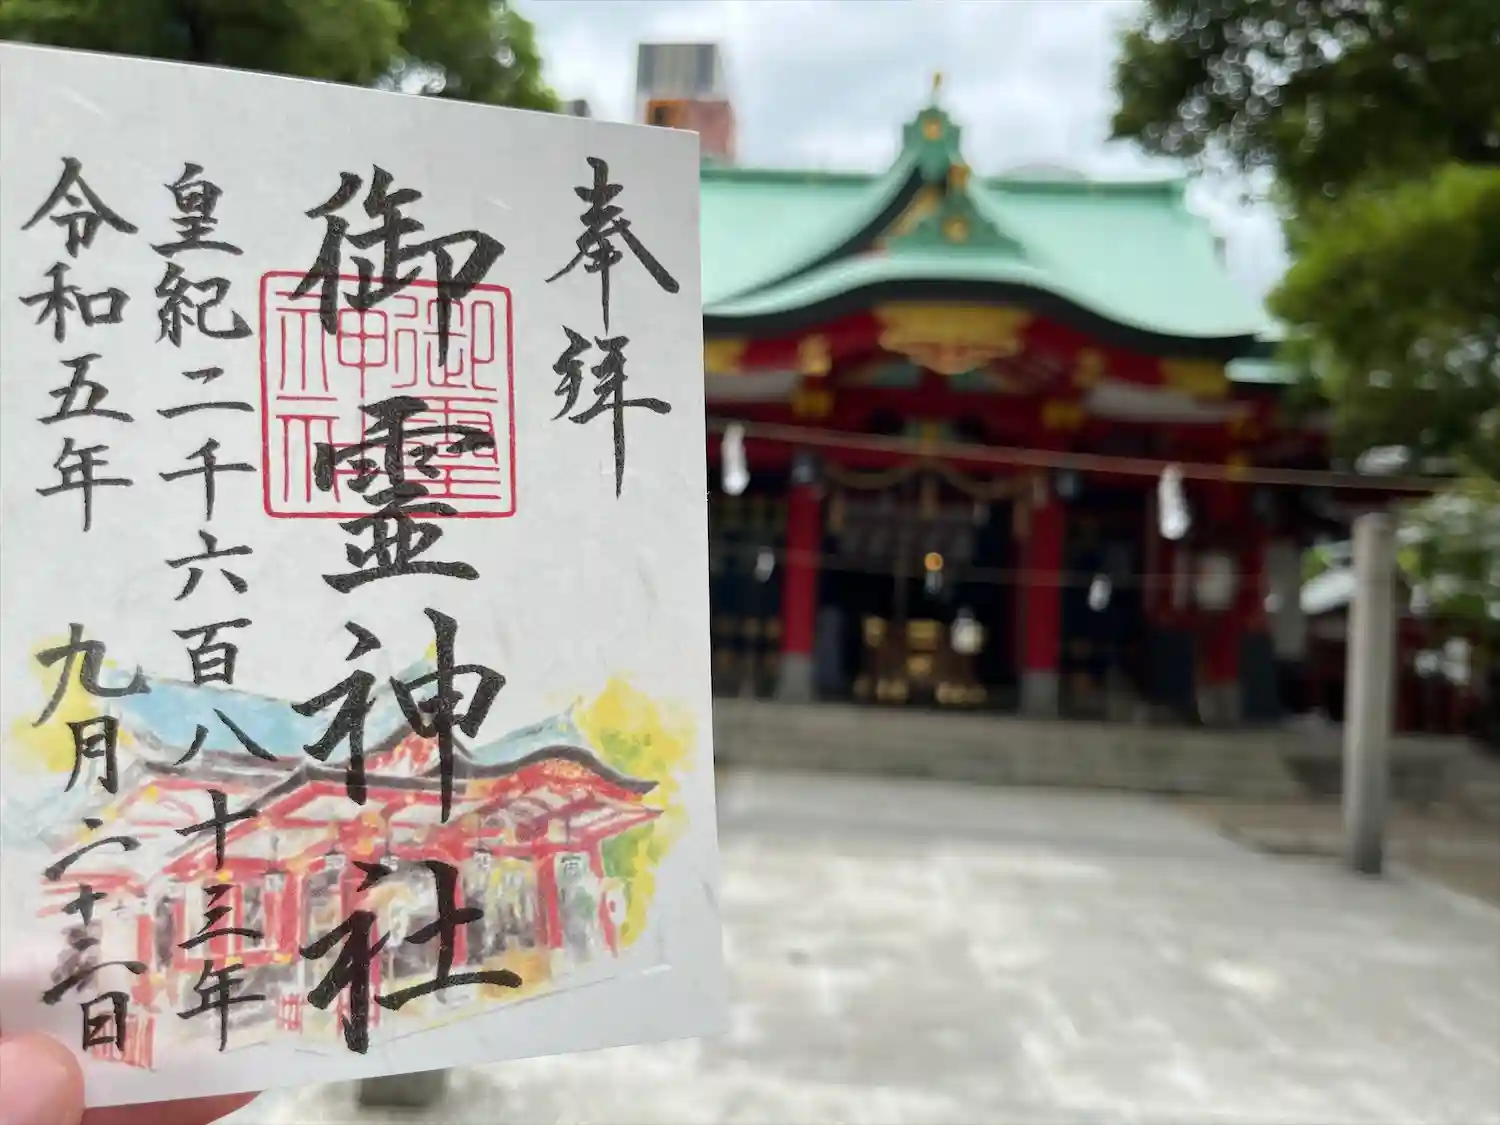 奉拝
御霊神社
御霊
神社
皇紀二千六百八十三年
令和五年 九月二十日